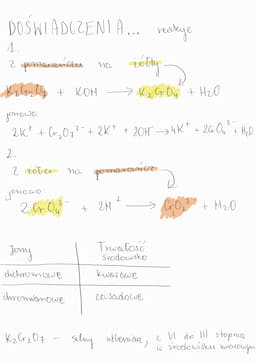 DOŚWIADCZENIA... reakcje
1.
z pomarańczu na żółty
K₂Cr₂O₇ + KOH → K₂CrO₄ + H₂O
jonowo:
2K⁺ + Cr₂O₇²⁻ + 2K⁺ + 2OH⁻ → 4K⁺ + 2CrO₄²⁻ + H₂O
2.
z żółtego na pomarańcz
jonowo:
2CrO₄²⁻ + 2H⁺ → CrO₇²⁻ + H₂O
Jony Trwałość
środowisko
dichromowe kwasowe
chromianowe zasadowe
K₂Cr₂O₇ - silny utleniacz, z VI do III stopnia
w środowisku kwasowym